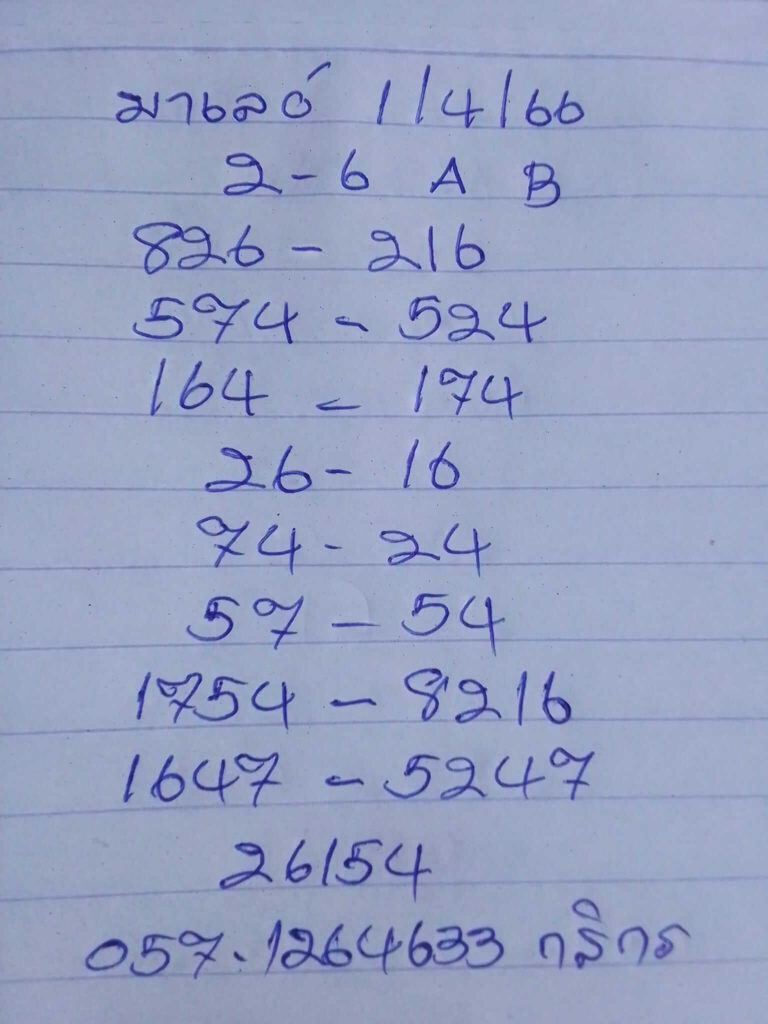 มาเลย์ 1/4/66
2-6 A B
826 - 216
574 - 524
164 - 174
26 - 16
74 - 24
57 - 54
1754 - 8216
1647 - 5247
26154
057.1264633